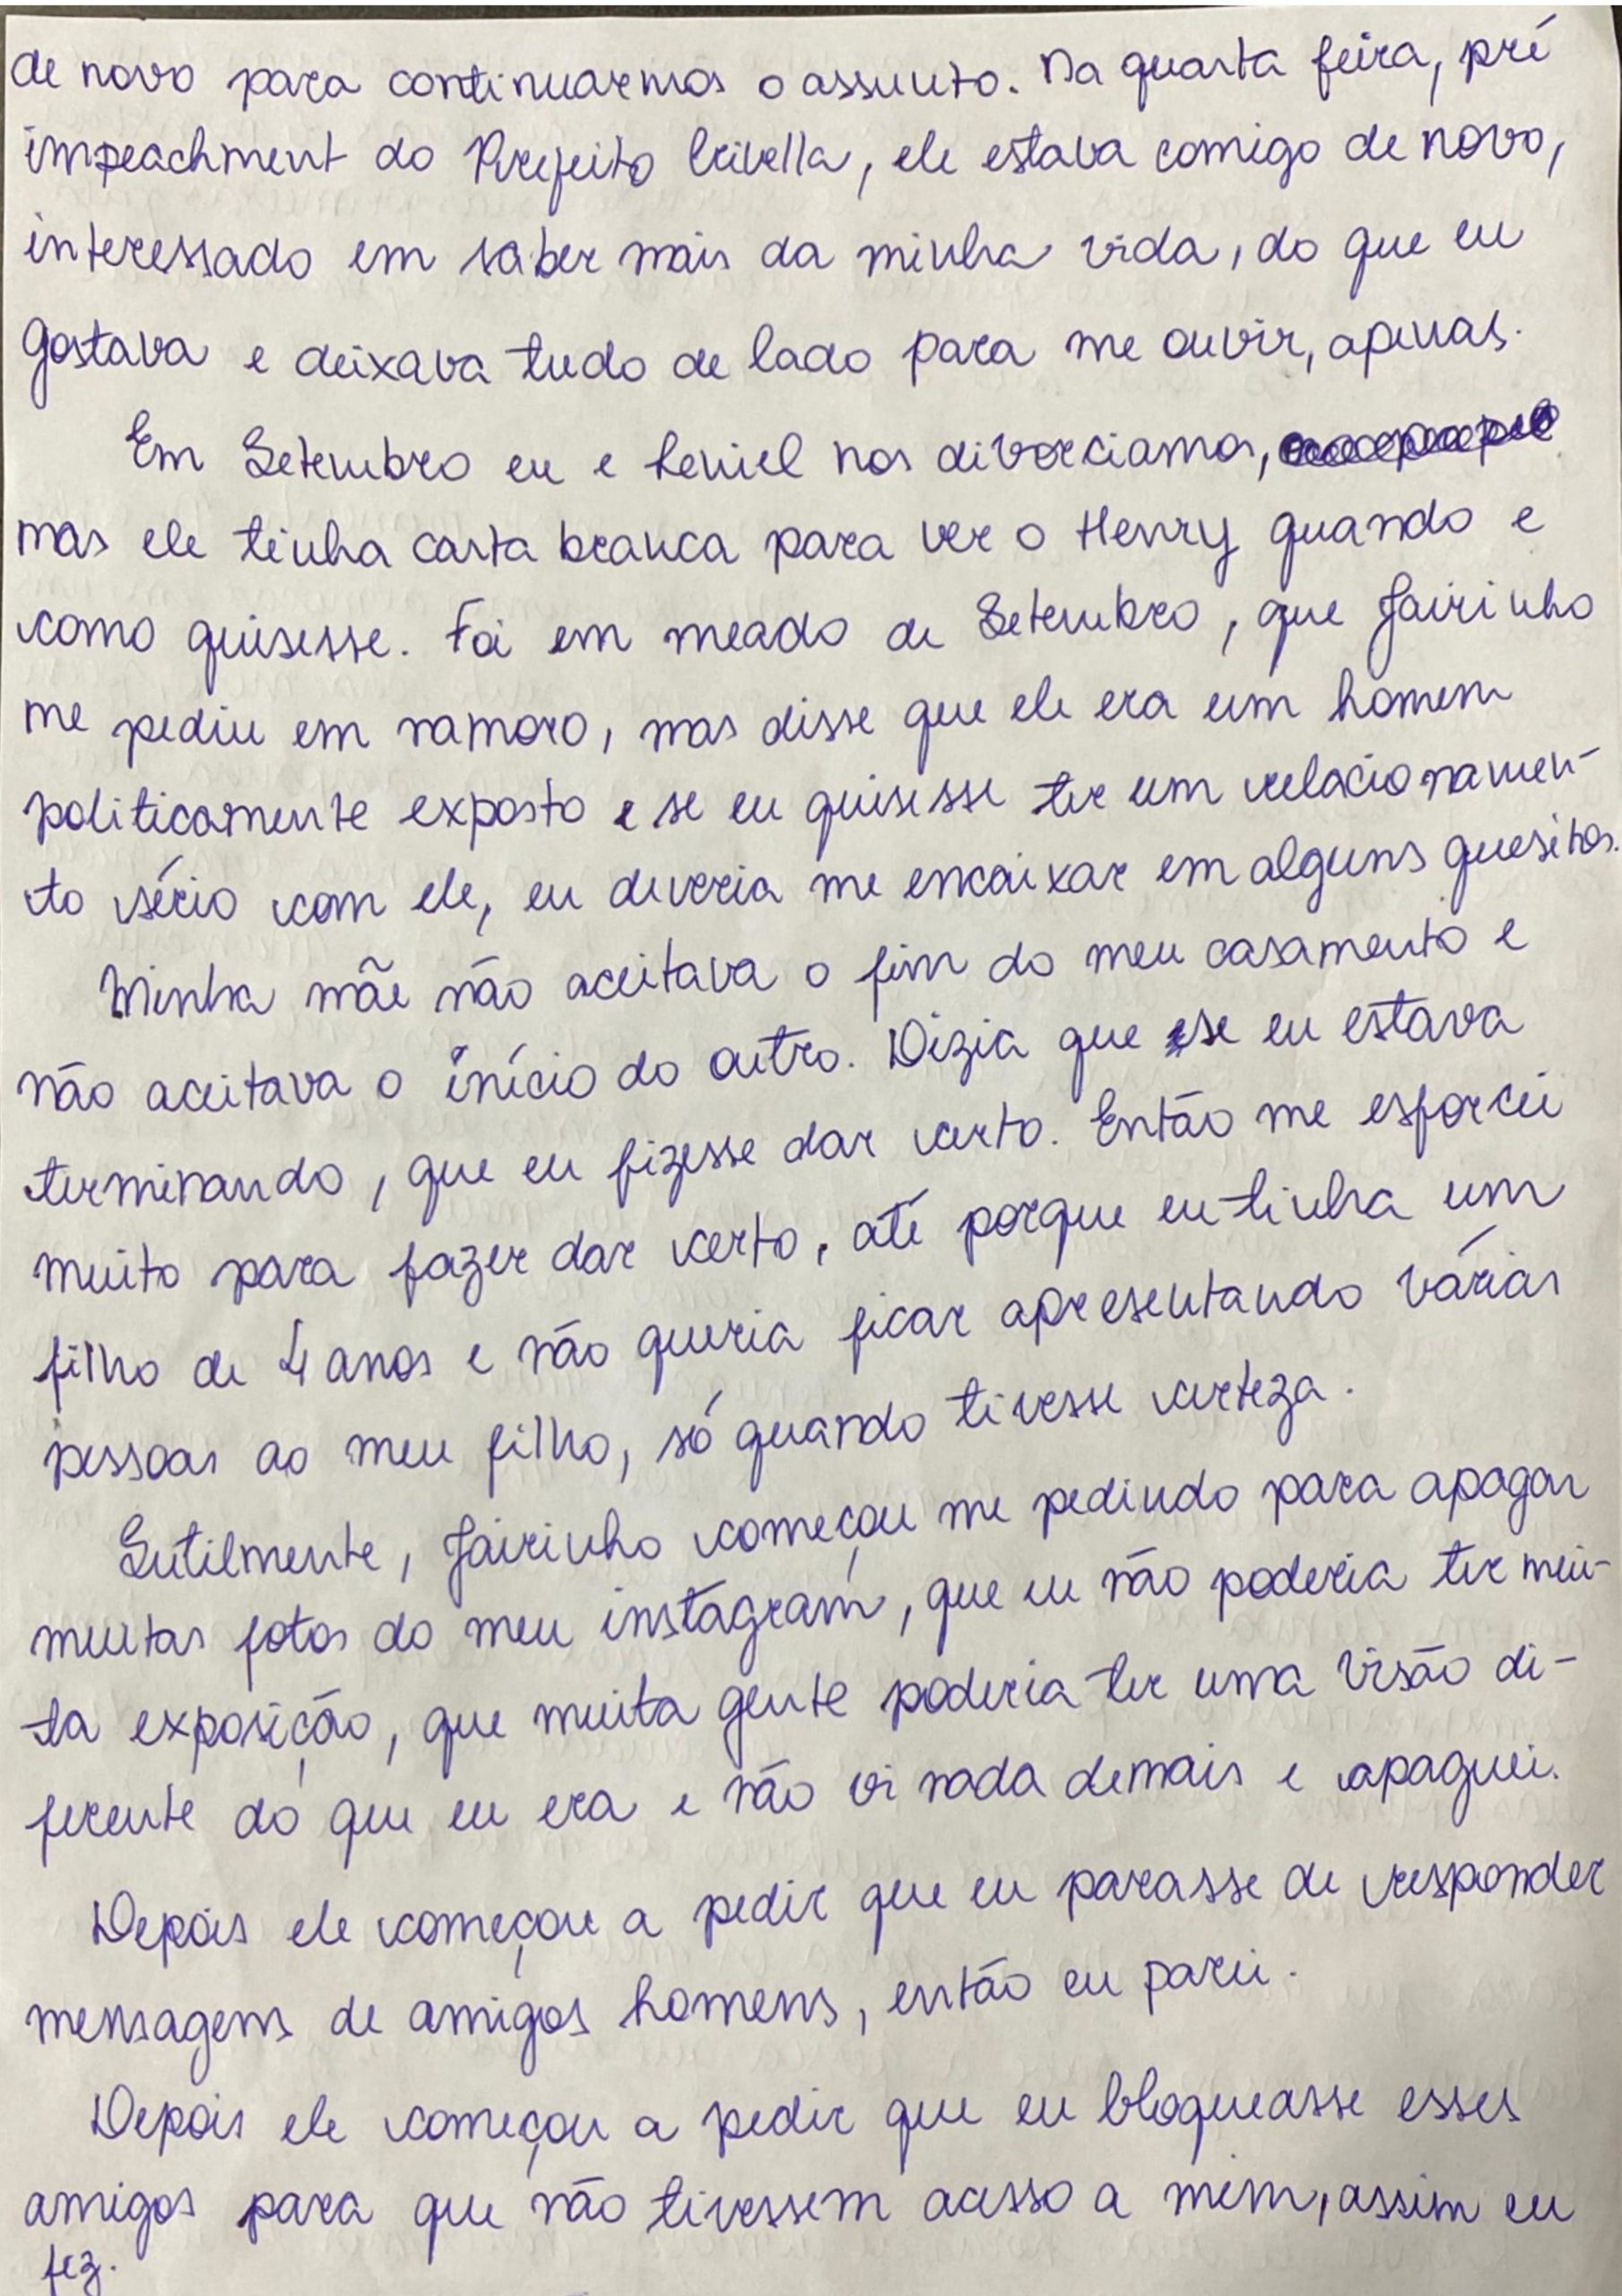 de novo para continuarmos o assunto. Na quarta feira, pré
impeachment do Prefeito Crivella, ele estava comigo de novo,
interessado em saber mais da minha vida, do que eu
gostava e deixava tudo de lado para me ouvir, apenas.
Em Setembro eu e Leniel nos divorciamos,
mas ele tinha carta branca para ver o Henry quando e
como quisesse. Foi em meado de Setembro, que Jairinho
me pediu em namoro, mas disse que ele era um homem
politicamente exposto e se eu quisesse ter um relacionamen-
to sério com ele, eu deveria me encaixar em alguns quesitos.
Minha mãe não aceitava o fim do meu casamento e
não aceitava o início do outro. Dizia que se eu estava
terminando, que eu fizesse dar certo. Então me esforcei
muito para fazer dar certo, até porque eu tinha um
filho de 4 anos e não queria ficar apresentando várias
pessoas ao meu filho, só quando tivesse certeza.
Sutilmente, Jairinho começou me pedindo para apagar
muitas fotos do meu instagram, que eu não poderia ter mui-
ta exposição, que muita gente poderia ter uma visão di-
ferente do que eu era e não vi nada demais e apaguei.
Depois ele começou a pedir que eu parasse de responder
mensagens de amigos homens, então eu parei.
Depois ele começou a pedir que eu bloqueasse esses
amigos para que não tivessem acesso a mim, assim eu
fez.